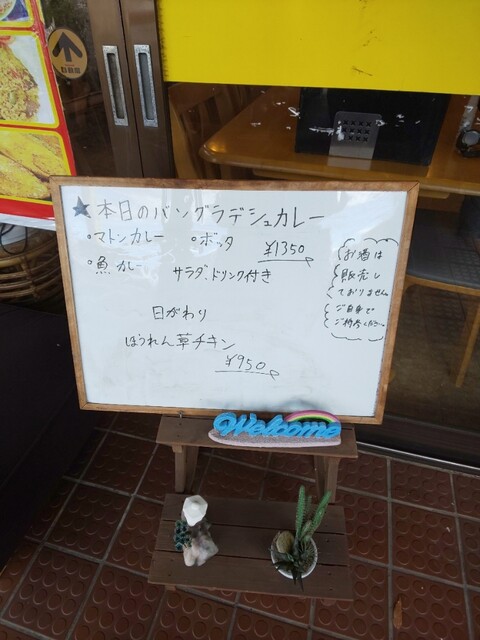 ★本日のバングラデシュカレー
・マトンカレー ・ボッタ ¥1350
・魚カレー
サラダ、ドリンク付き
日がわり
ほうれん草チキン
¥950
お酒は
販売し
ておりません
ご自身で
ご持参くださ
Welcome